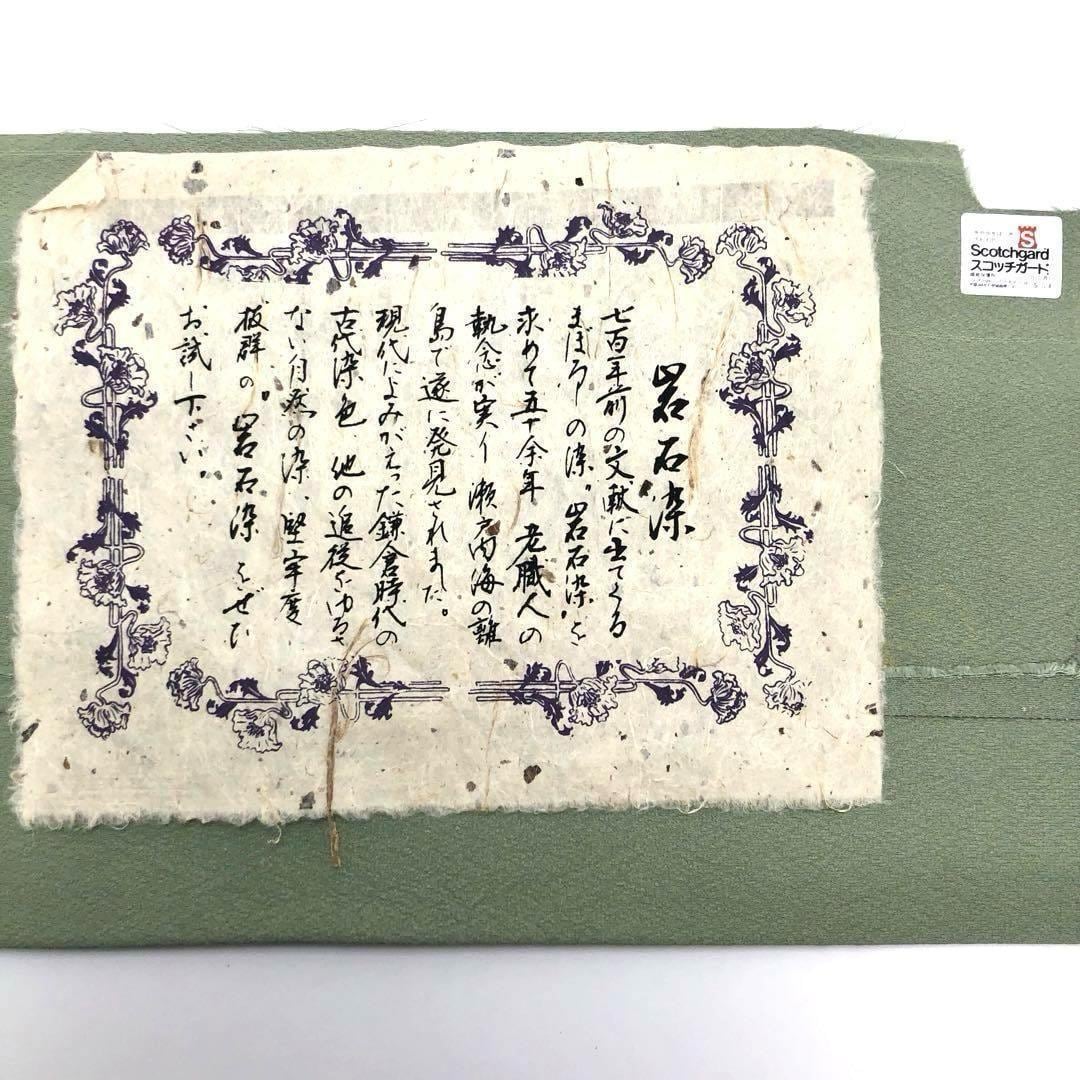 岩石染
七百年前の文献に出てくる
まぼろしの染。岩石染。を
求めて五十余年 老職人の
執念が実り 瀬戸内海の離
島で遂に発見されました。
現代によみがえった鎌倉時代の
古代染色 他の追従をゆるさ
ない自然の染、堅牢度
抜群の。岩石染 をぜひ
お試し下さい。
S
Scotchgard
スコッチガード